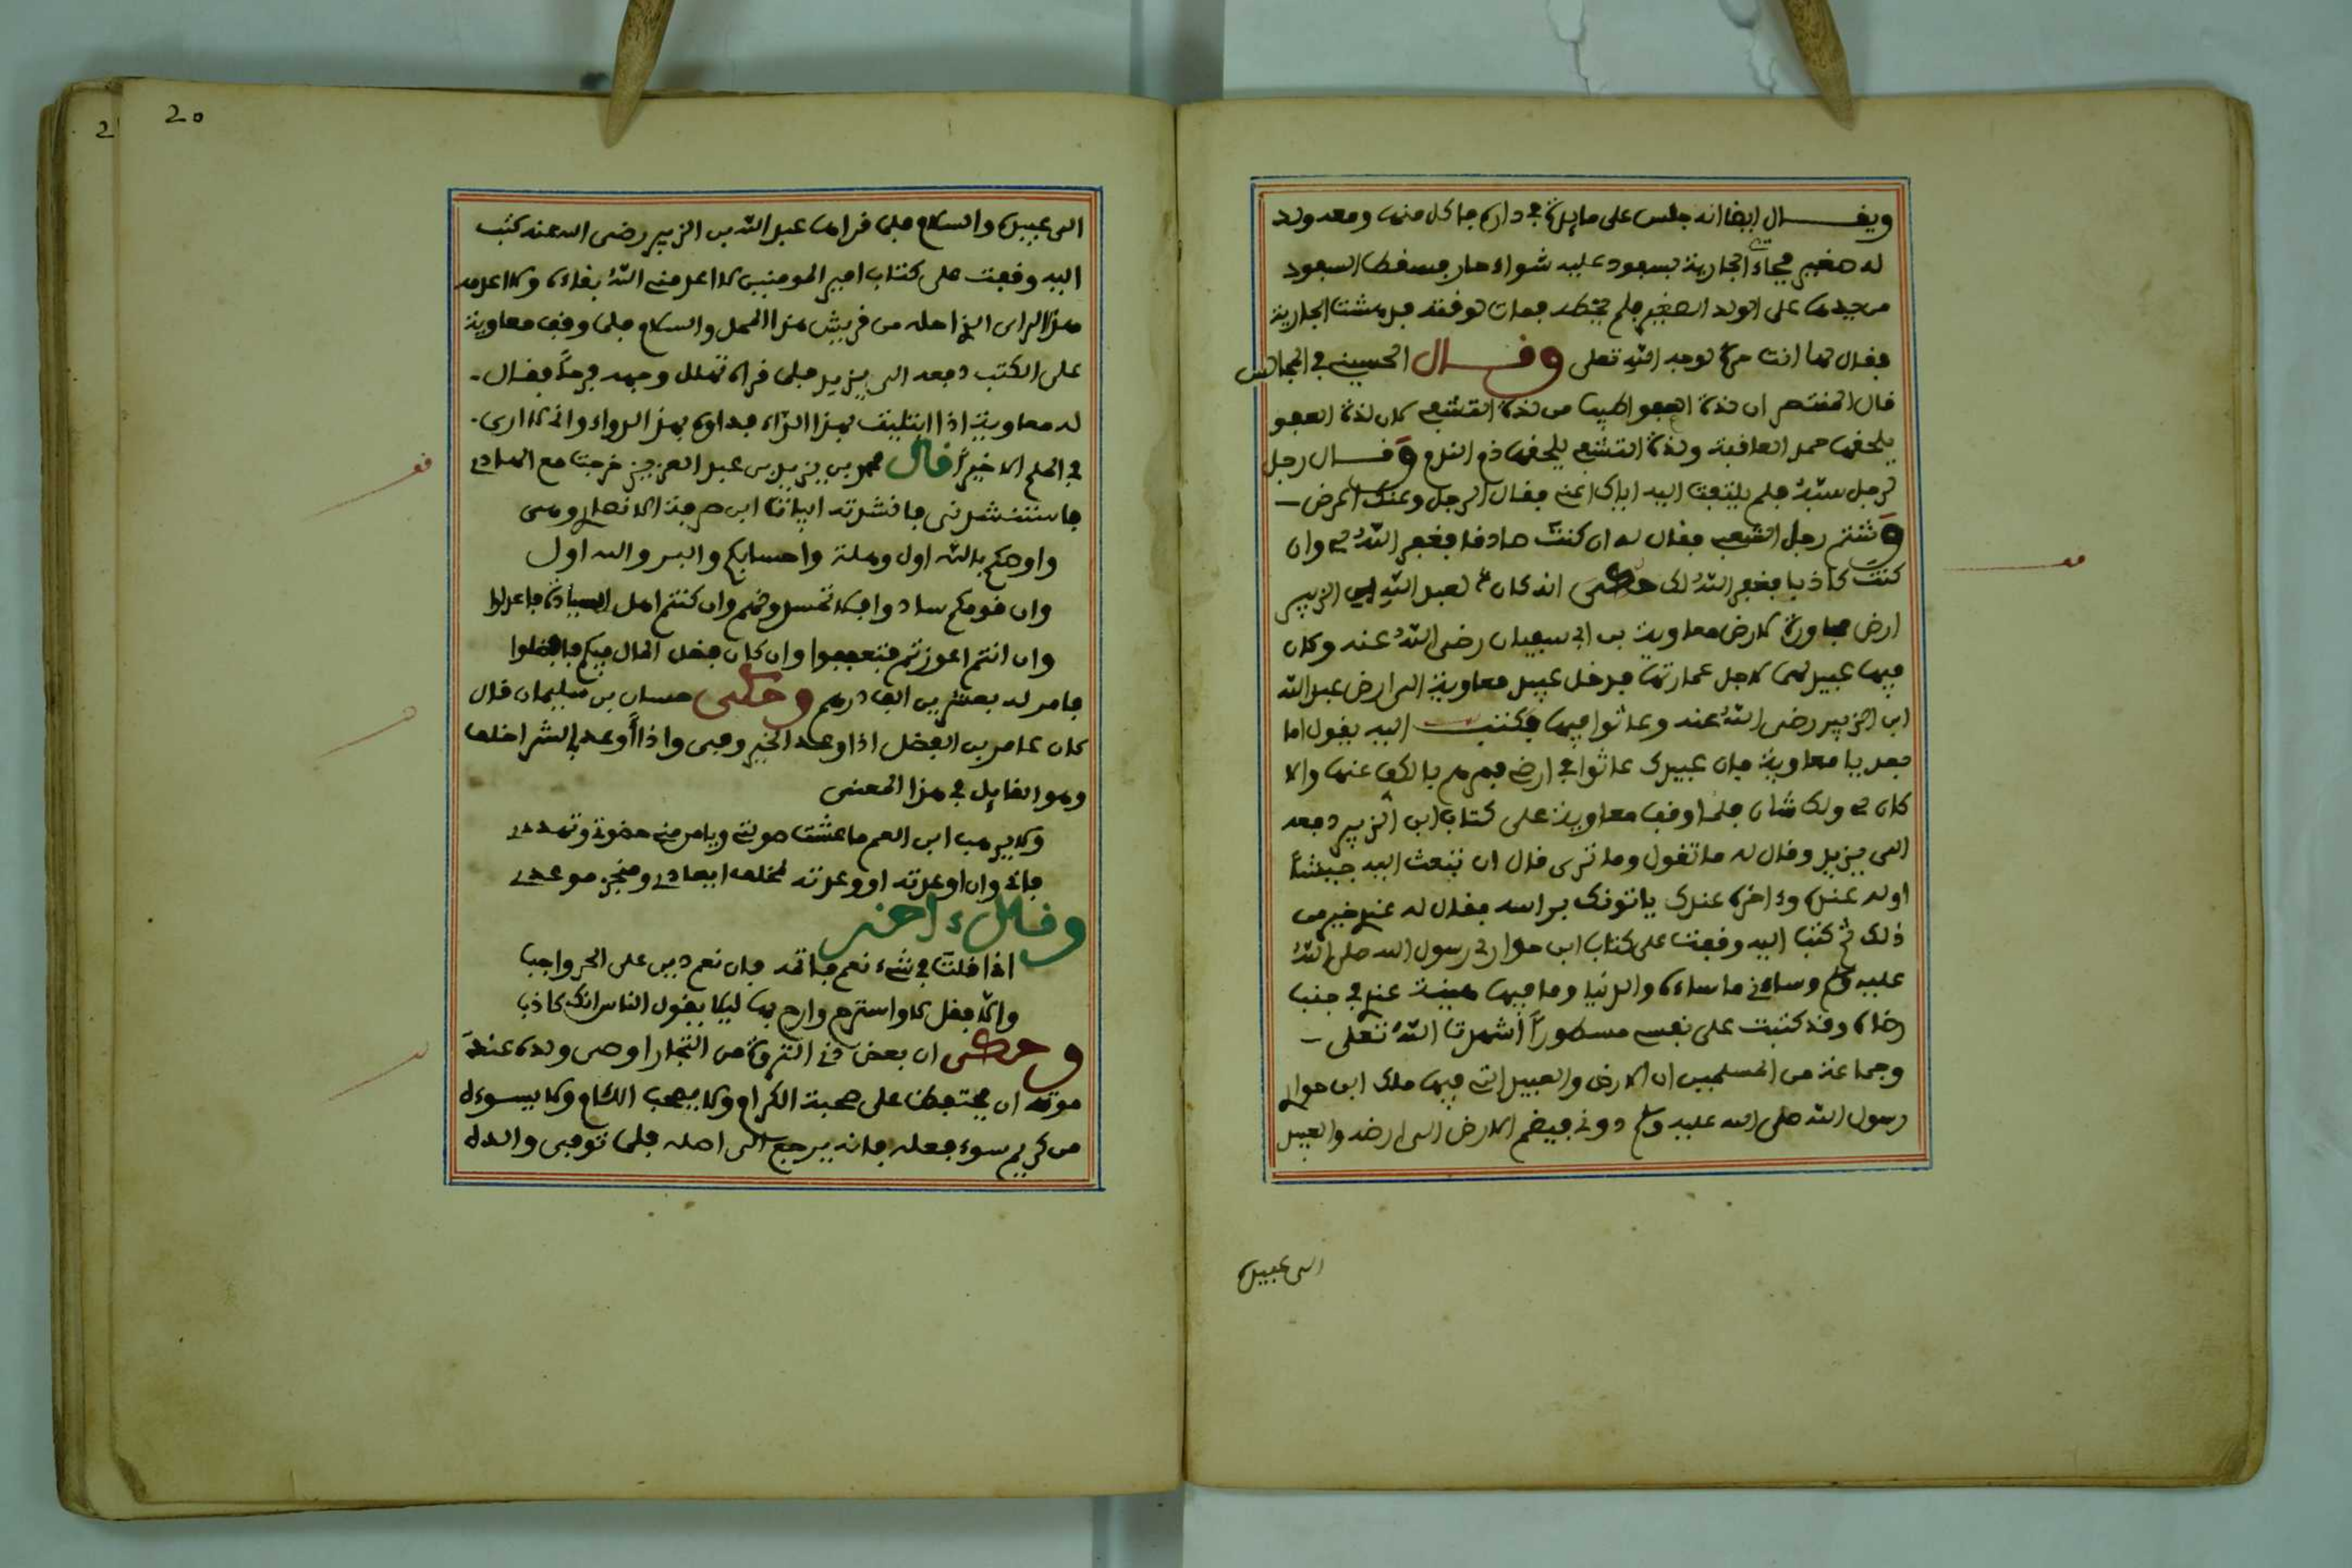 ويقال ايضا انه جلس على مايدة في داره فاكل منها ومعه ولد
له صغير فجاءت الجارية بسفود عليه شواء حار فسقط السفود
من يدها على الولد الصغير فلم يخطه فمات لوقته فدهشت الجارية
فقال لها انت حرة لوجه الله تعلى وقال الحسين في المجالس
قال المنتصر ان لذة العفو اطيب من لذة التشفي لان لذة العفو
يلحقها حمد العافية ولذة التشفي يلحقها ذم الندم وقال رجل
لرجل سبه فلم يلتفت اليه اياك اعني فقال الرجل وعنك اعرض
وشتم رجل الشعبي فقال له ان كنت صادقا فغفر الله لي وان
كنت كاذبا فغفر الله لك حكى انه كان لعبد الله ابن الزبير
ارض مجاورة لارض معاوية بن ابي سفيان رضي الله عنه وكان
فيها عبيد لهما لاجل عمارتها فدخل عبيد معاوية الى ارض عبد الله
ابن الزبير رضي الله عنه وعاثوا فيها فكتب اليه يقول اما
بعد يا معاوية فان عبيدك عاثوا في ارضي فمرهم بالكف عنها والا
كان لي ولك شان فلما وقف معاوية على كتاب ابن الزبير دفعه
الى يزيد وقال له ما تقول وما ترى قال ان نبعث اليه جيشا
اوله عنده وءاخره عندك ياتونك براسه فقال له عندي خير من
ذلك ثم كتب اليه وقفت على كتاب ابن حواري رسول الله صلى الله
عليه وسلم وساءني ما ساءه والدنيا وما فيها هينة عندي في جنب
رضاه وقد كتبت على نفسي مسطورا اشهدت الله تعلى
وجماعة من المسلمين ان الارض والعبيد التي فيها ملك ابن حواري
رسول الله صلى الله عليه وسلم دوني فيضم الارض الى ارضه والعبيد
الى عبيده
20
الى عبيده والسلام فلما قراها عبد الله بن الزبير رضي الله عنه كتب
اليه وقفت على كتاب امير المومنين لا اعدمني الله بقاءه ولا اعدمه
هذا الراي الذي احله من قريش هذا المحل والسلام فلما وقف معاوية
على الكتب دفعه الى يزيد فلما قراه تهلل وجهه فرحا فقال
له معاوية اذا ابتليت بهذا الداء فداوه بهذا الدواء واني لا ارى
في الحلم الا خيرا قال محمد بن يزيد بن عبد العزيز خرجت مع الهادي
فاستنشدني فانشدته ابيات ابن صرمة الانصاري وهي
واوصكم بالله اول وهلة واحسابكم والبر والله اول
وان قومكم سادوا فلا تحسدوهم وان كنتم اهل السيادة فاعدلوا
وان انتم اعوزتم فتعففوا وان كان فضل المال فيكم فافضلوا
فامر له بعشرين الف درهم وحكى حسان بن سليمان قال
كان عامر بن الفضل اذا وعد الخير وفى واذا اوعد بالشر اخلف
وهو القايل في هذا المعنى
ولا يرهب ابن العم ما عشت صولتي ويامن مني صولة وتهددي
فاني وان اوعدته او وعدته لمخلف ايعادي ومنجز موعدي
وقال ءاخر
اذا قلت في شيء نعم فاتمه فان نعم دين على الحر واجب
والا فقل لا واسترح وارح بها ليلا يقول الناس انك كاذب
وحكى ان بعض ذي الثروة من التجار اوصى ولده عند
موته ان يحتفظ على صحبة الكرام ولا يصحب اللئام ولا يسوءه
من كريم سوء فعله فانه يرجع الى اصله فلما توفي والده